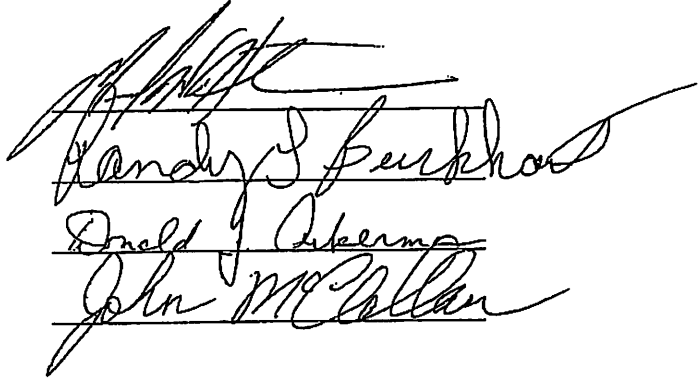 Randy L Burkhart
Donald J. Ackerman
John McClellan